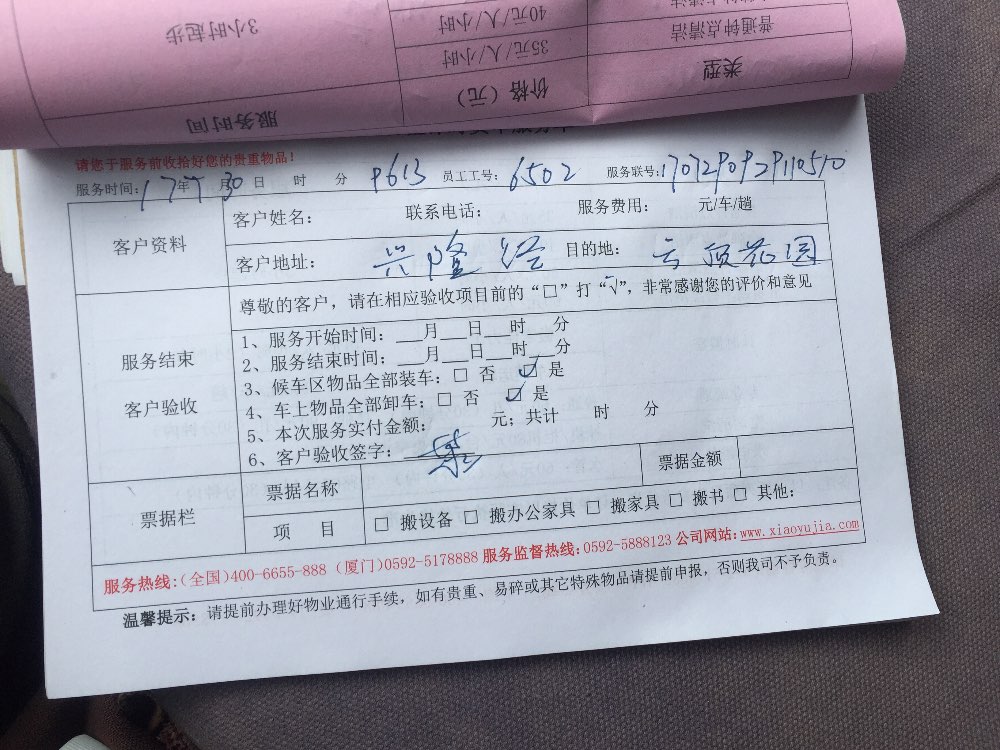 3小时起步
40元/人/小时
普通钟点清洁
35元/人/小时
服务时间
价格（元）
类型
请您于服务前收拾好您的贵重物品！
服务时间：17年7月30日 时 分 9613 员工工号：6502 服务联号：170729092910510
客户资料
客户姓名： 联系电话： 服务费用： 元/车/趟
客户地址：兴隆经 目的地：云顶花园
服务结束
客户验收
尊敬的客户，请在相应验收项目前的“□”打“√”，非常感谢您的评价和意见
1、服务开始时间：___月___日___时___分
2、服务结束时间：___月___日___时___分
3、候车区物品全部装车：□ 否 ☑ 是
4、车上物品全部卸车：□ 否 ☑ 是
5、本次服务实付金额： 元；共计 时 分
6、客户验收签字：
票据栏
票据名称
票据金额
项 目
□ 搬设备 □ 搬办公家具 □ 搬家具 □ 搬书 □ 其他：
服务热线:(全国)400-6655-888 (厦门)0592-5178888 服务监督热线:0592-5888123 公司网站:www.xiaoyujia.com
温馨提示：请提前办理好物业通行手续，如有贵重、易碎或其它特殊物品请提前申报，否则我司不予负责。